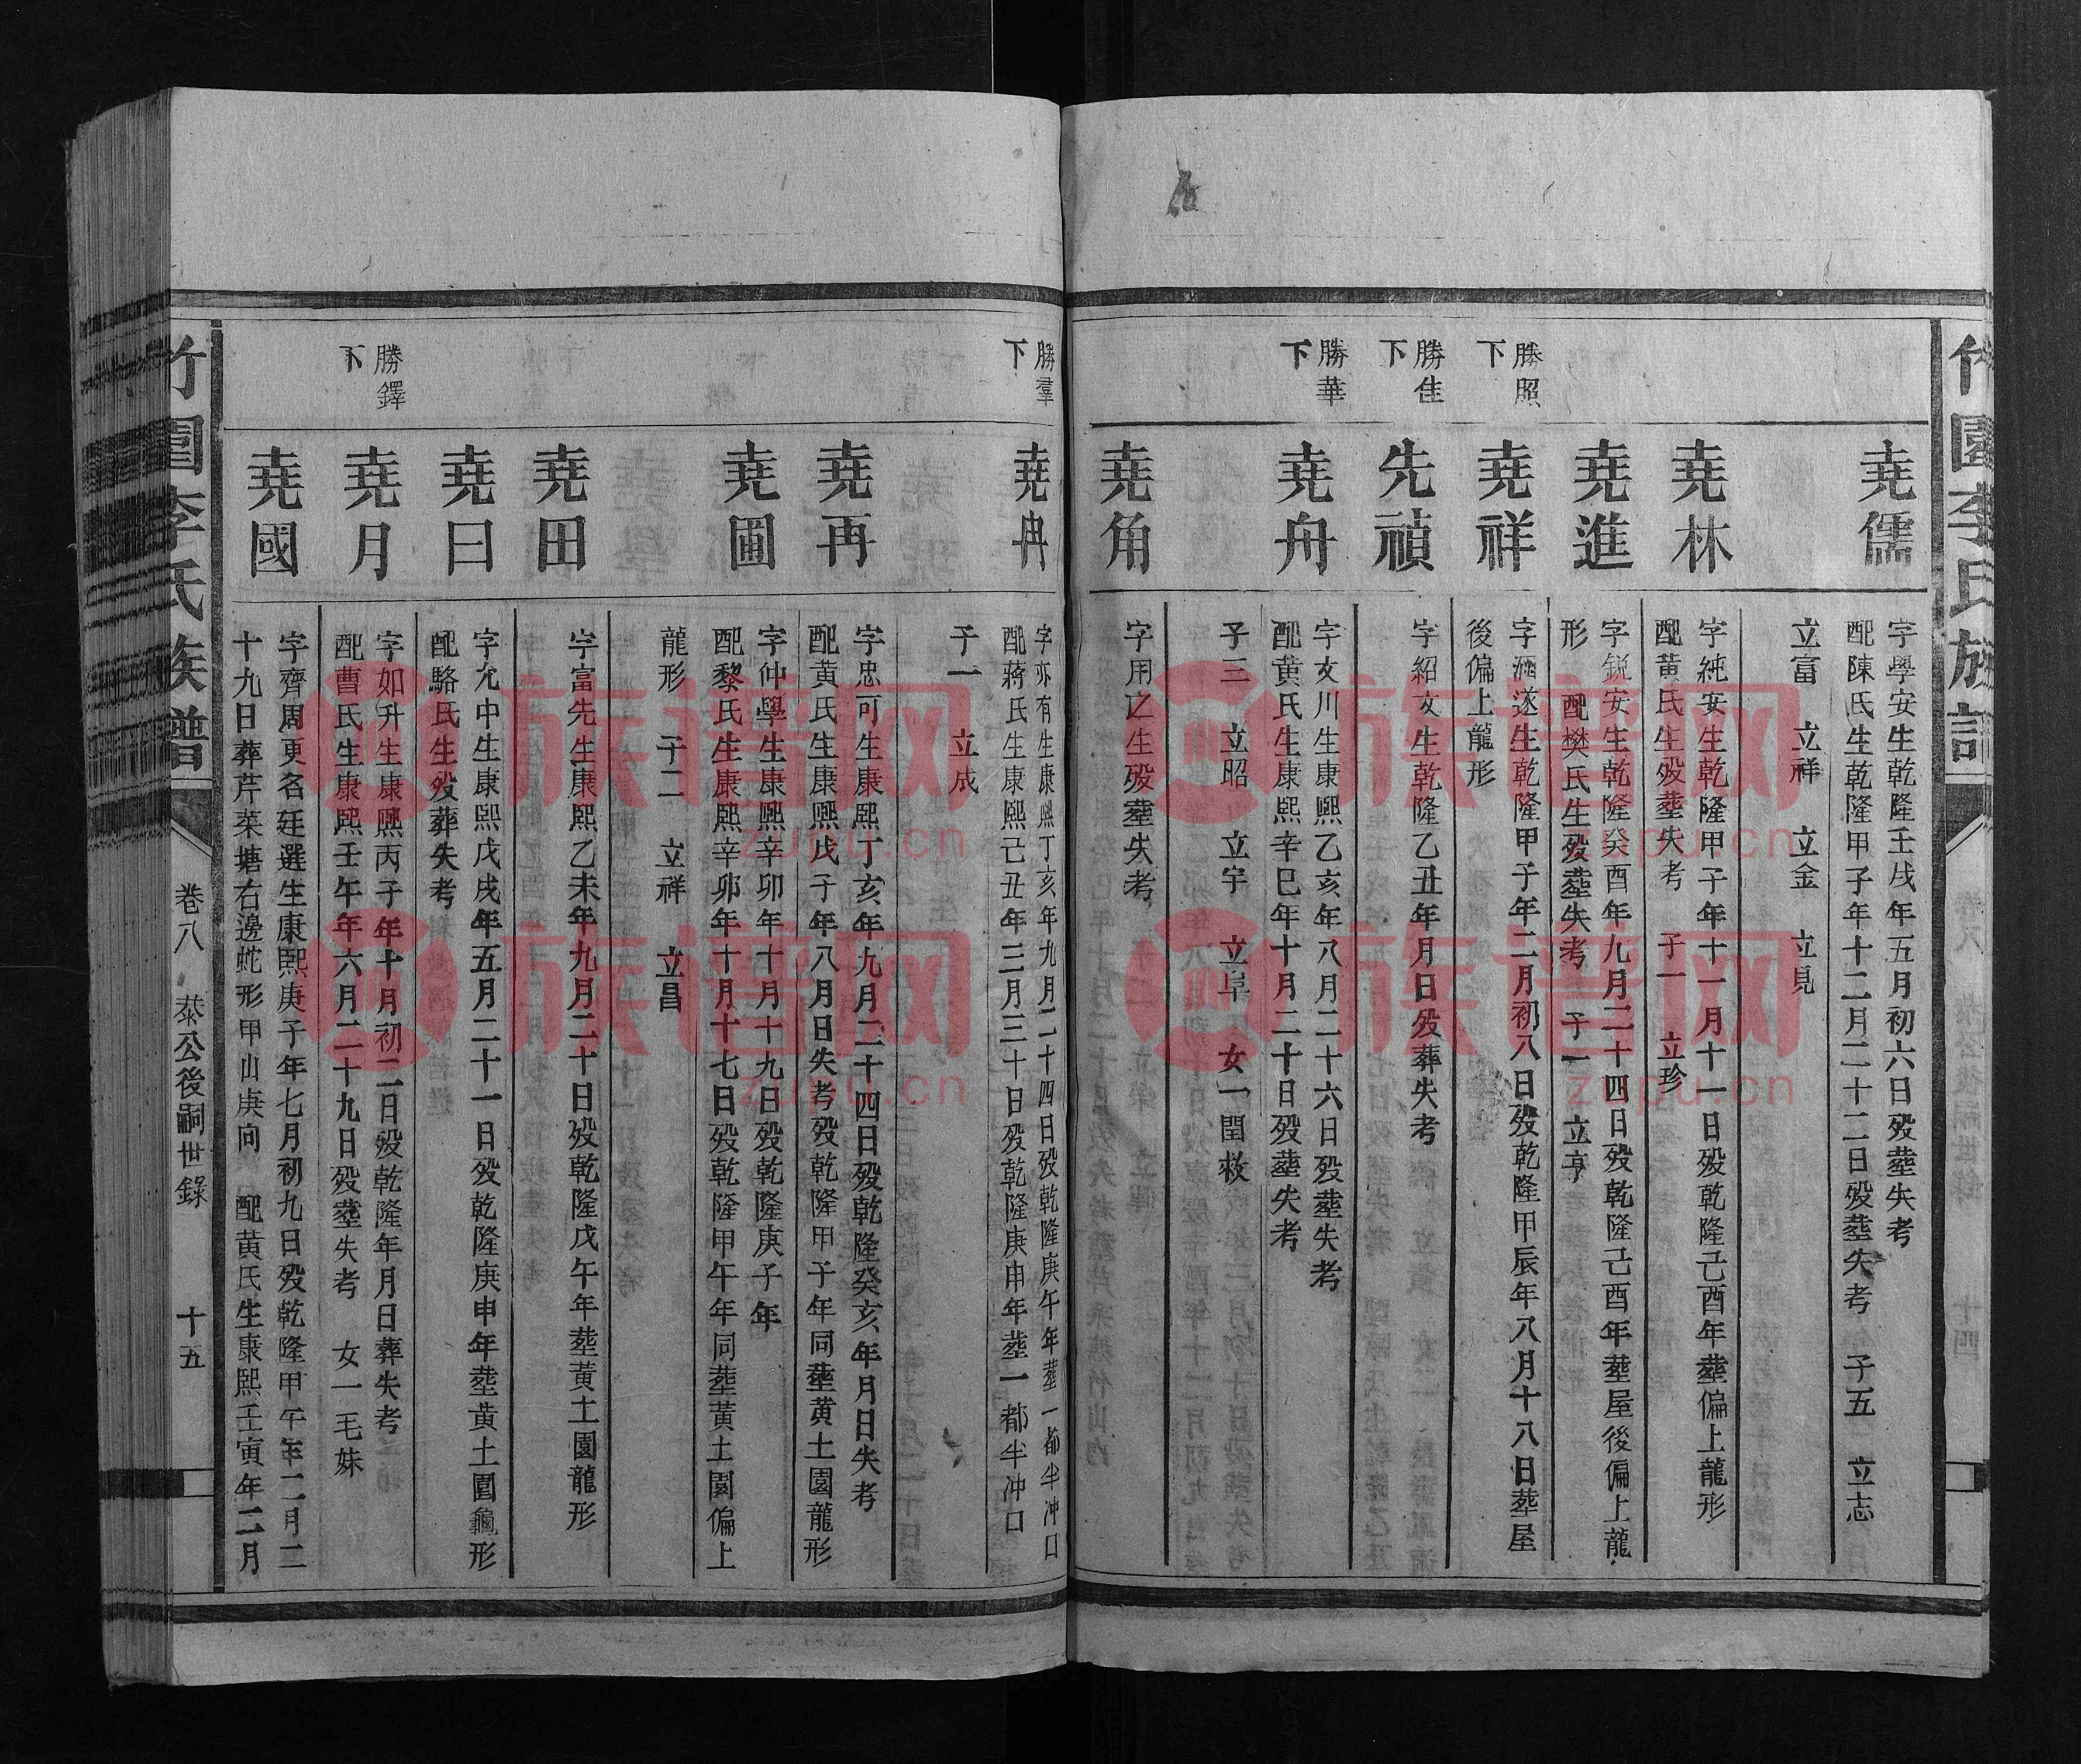 竹園李氏族譜
堯儒
字學安生乾隆壬戌年五月初六日殁塟失考
配陳氏生乾隆甲子年十二月二十二日殁塟失考 子五 立志
立富 立祥 立金 立見
堯林
字純安生乾隆甲子年十一月十一日殁乾隆己酉年塟偏上龍形
配黄氏生殁塟失考 子一 立珍
堯進
字鋭安生乾隆癸酉年九月二十四日殁乾隆己酉年塟屋後偏上龍
形 配樊氏生殁塟失考 子一 立亨
勝照下
堯祥
字 遂生乾隆甲子年二月初八日殁乾隆甲辰年八月十八日葬屋
後偏上龍形
勝佳下
先禎
字紹文生乾隆乙丑年月日殁葬失考
勝華下
堯舟
字文川生康熙乙亥年八月二十六日殁塟失考
配黄氏生康熙辛巳年十月二十日殁塟失考
子三 立昭 立宇 立阜 女一閏救
堯角
字用之生殁塟失考
勝羣下
堯冉
字亦有生康熙丁亥年九月二十四日殁乾隆庚午年塟一都半冲口
配蔣氏生康熙己丑年三月三十日殁乾隆庚申年塟一都半冲口
子一 立成
堯再
字忠可生康熙丁亥年九月二十四日殁乾隆癸亥年月日失考
配黄氏生康熙戊子年八月日失考殁乾隆甲子年同塟黄土園龍形
堯圃
字仲學生康熙辛卯年十月十九日殁乾隆庚子年
配黎氏生康熙辛卯年十月十七日殁乾隆甲午年同塟黄土園偏上
龍形 子二 立祥 立昌
堯田
字富先生康熙乙未年九月二十日殁乾隆戊午年塟黄土園龍形
堯曰
字允中生康熙戊戌年五月二十一日殁乾隆庚申年塟黄土園龜形
配駱氏生殁葬失考
勝鐸下
堯月
字如升生康熙丙子年十月初二日殁乾隆年月日葬失考
配曹氏生康熙壬午年六月二十九日殁塟失考 女一毛妹
堯國
字齊周更名廷選生康熙庚子年七月初九日殁乾隆甲午年二月二
十九日葬芹菜塘右邊蛇形甲山庚向 配黄氏生康熙壬寅年二月
竹園李氏族譜
卷八 泰公後嗣世錄 十五
族谱网
zupu.cn
族谱网
zupu.cn
族谱网
zupu.cn
族谱网
zupu.cn